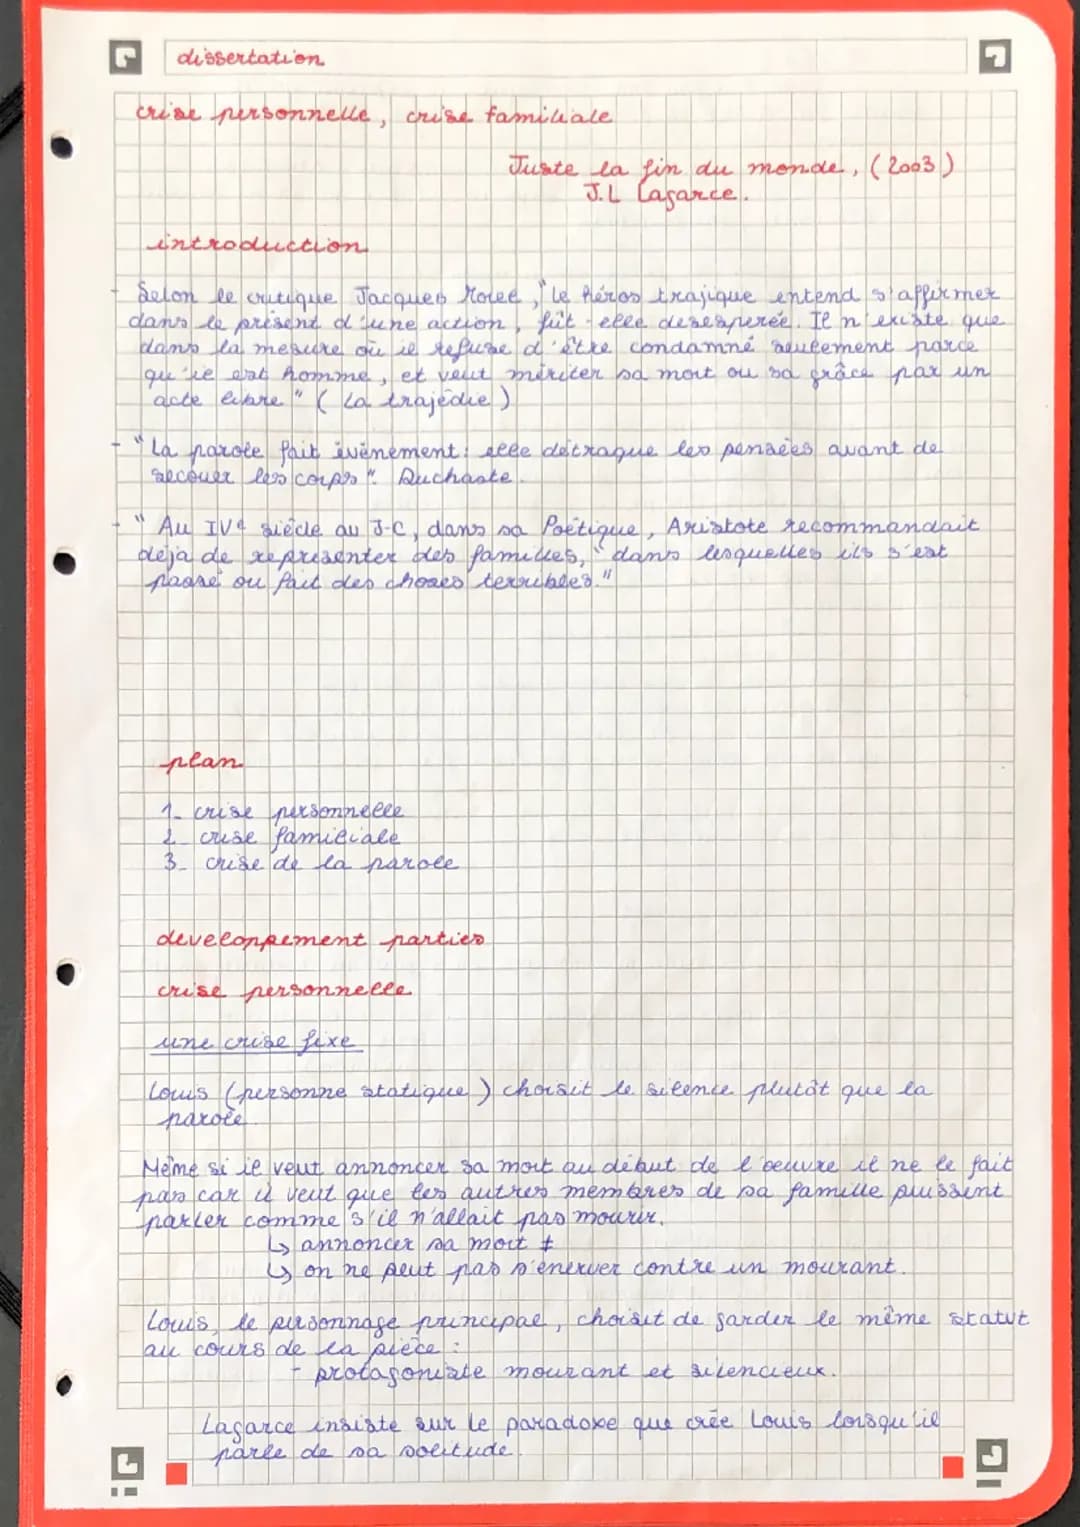 dissertation
crise personnelle, crise familiale
Juste la fin du monde, (2003)
J.L Lagarce.
introduction
- Selon le critique Jacques Morel, "le héros trajique entend s'affirmer
dans le présent d'une action, fût-elle desesperée. Il n'existe que
dans la mesure où il refuse d'être condamné seulement parce
qu'il est homme, et veut mériter sa mort ou sa grâce par un
acte libre" (La trajédie)
- "La parole fait évènement: elle détraque les pensées avant de
secouer les corps". Ruchaste.
- " Au IVe siècle av J-C, dans sa Poétique, Aristote recommandait
déja de representer des familles, "dans lesquelles ils s'est
passé ou fait des choses terribles."
plan
1- crise personnelle
2- crise familiale
3- crise de la parole
developpement parties
crise personnelle
une crise fixe
Louis (personne statique) choisit le silence plutôt que la
parole
Même si il veut annoncer sa mort au début de l'oeuvre il ne le fait
pas car il veut que les autres membres de sa famille puissent
parler comme s'il n'allait pas mourir.
↳ annoncer sa mort ≠
↳ on ne peut pas s'énerver contre un mourant.
Louis, le personnage principal, choisit de garder le même statut
au cours de la pièce :
- protagoniste mourant et silencieux.
Lagarce insiste sur le paradoxe que crée Louis lorsqu'il
parle de sa solitude.